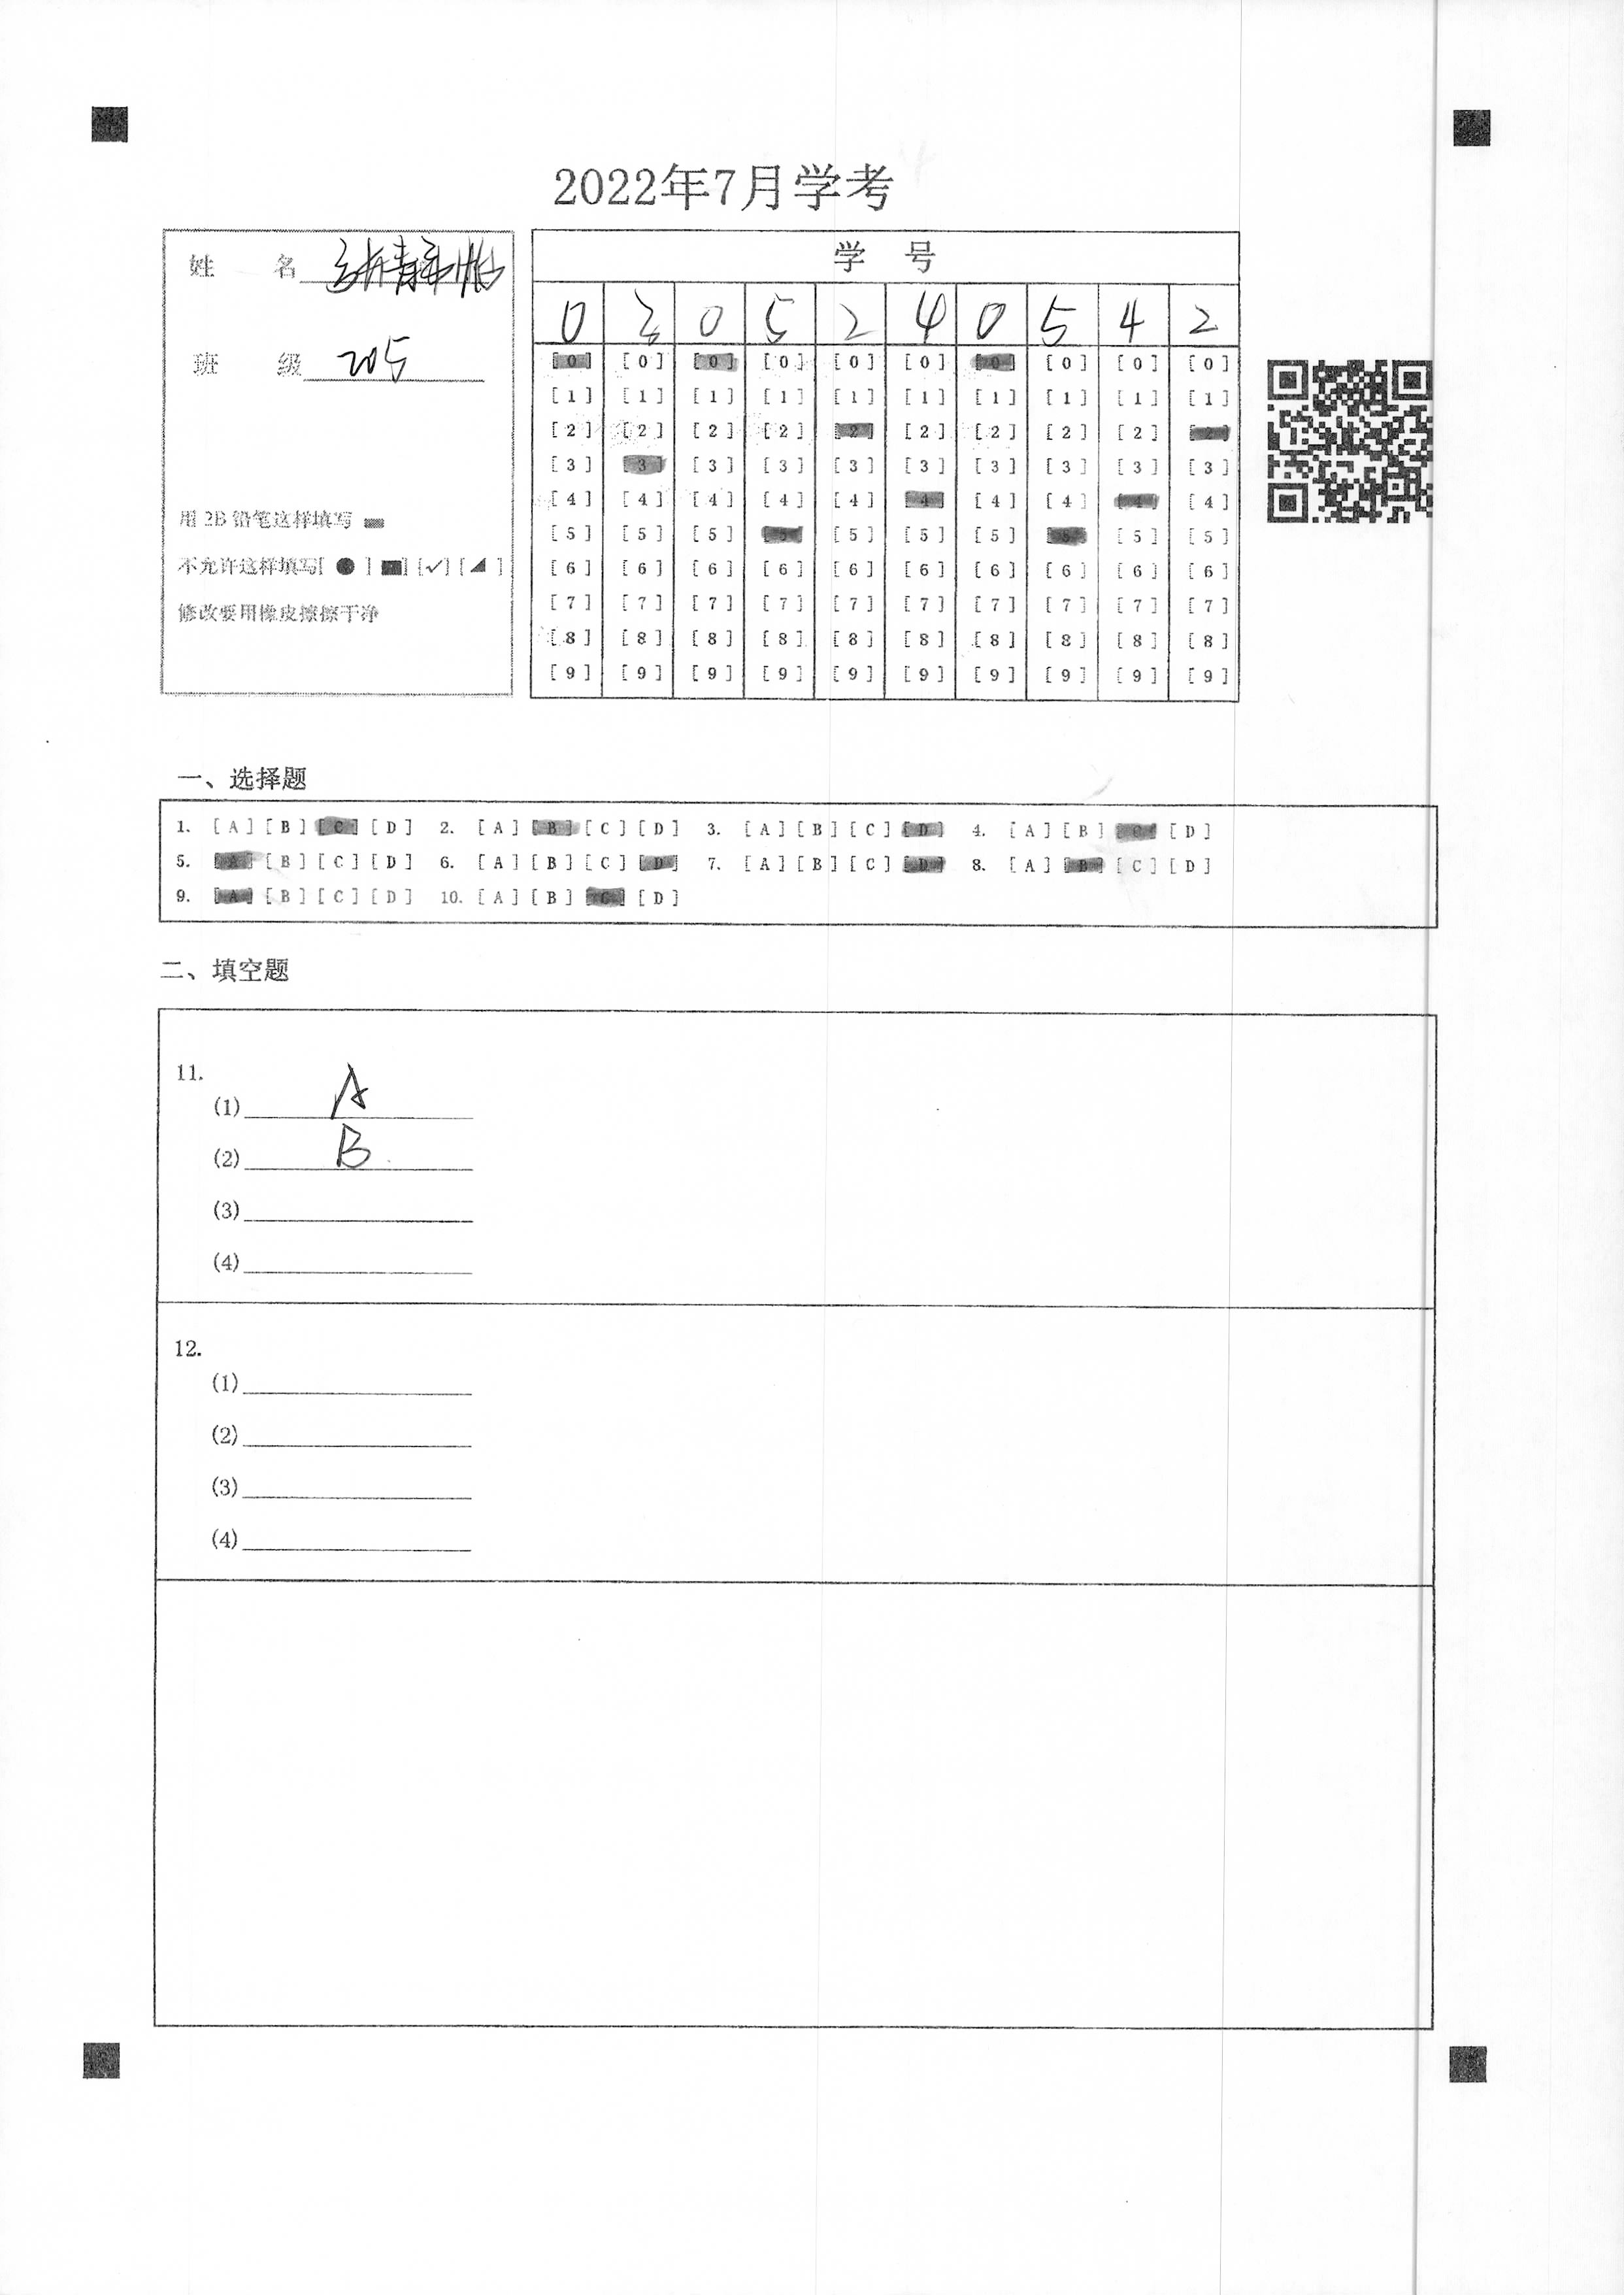 2022年7月学考
姓 名
班 级 205
用 2B 铅笔这样填写
不允许这样填写[ ● ] [■] [✓] [◢ ]
修改要用橡皮擦擦干净
学 号
0 3 0 5 2 4 0 5 4 2
[0] [0] [0] [0] [0] [0] [0] [0] [0] [0]
[1] [1] [1] [1] [1] [1] [1] [1] [1] [1]
[2] [2] [2] [2] [2] [2] [2] [2] [2] [2]
[3] [3] [3] [3] [3] [3] [3] [3] [3] [3]
[4] [4] [4] [4] [4] [4] [4] [4] [4] [4]
[5] [5] [5] [5] [5] [5] [5] [5] [5] [5]
[6] [6] [6] [6] [6] [6] [6] [6] [6] [6]
[7] [7] [7] [7] [7] [7] [7] [7] [7] [7]
[8] [8] [8] [8] [8] [8] [8] [8] [8] [8]
[9] [9] [9] [9] [9] [9] [9] [9] [9] [9]
一、选择题
1. [A] [B] [C] [D] 2. [A] [B] [C] [D] 3. [A] [B] [C] [D] 4. [A] [B] [C] [D]
5. [A] [B] [C] [D] 6. [A] [B] [C] [D] 7. [A] [B] [C] [D] 8. [A] [B] [C] [D]
9. [A] [B] [C] [D] 10. [A] [B] [C] [D]
二、填空题
11.
(1) A
(2) B
(3)
(4)
12.
(1)
(2)
(3)
(4)